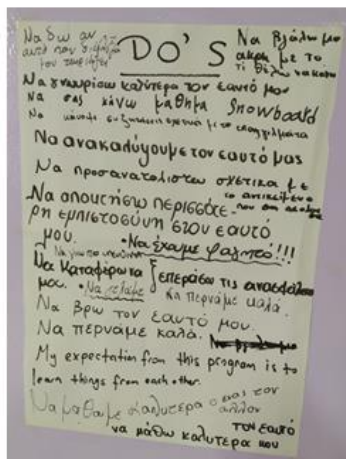 Να δω αν
αυτό που
DO'S
Να βγάλω μια
άκρη με το
τι θέλω να κάνω
Να γνωρίσω καλύτερα τον εαυτό μου
Να σας κάνω μάθημα Snowboard
Να κάνουμε συζητήσεις σχετικά με τα επαγγέλματα
Να ανακαλύψουμε τον εαυτό μας
Να προσανατολιστώ σχετικά με
το αντικείμενο
Να αποκτήσω περισσότε-
ρη εμπιστοσύνη στον εαυτό
μου.
• Να έχουμε φαγητό!!!
Να καταφέρω να ξεπεράσω τις
μου. • Να γελάμε
Να περνάμε καλά.
Να βρω τον εαυτό μου.
Να περνάμε καλά.
My expectation from this program is to
learn things from each other.
Να μάθουμε καλύτερα ο ένας τον
άλλον
τον εαυτό
να μάθω καλύτερα μου